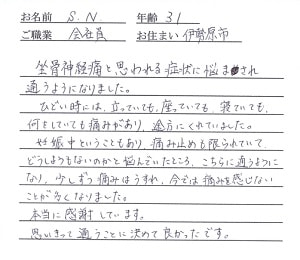 お名前 S.N 年齢 31
ご職業 会社員 お住まい 伊勢原市
坐骨神経痛と思われる症状に悩まされ
通うようになりました。
ひどい時には、立っていても、座っていても、寝ていても、
何をしていても痛みがあり、途方にくれていました。
妊娠中ということもあり、痛み止めも限られていて、
どうしようもないのかと悩んでいたところ、こちらに通うように
なり、少しずつ痛みはうすれ、今では痛みを感じない
ことが多くなりました。
本当に感謝しています。
思いきって通うことに決めて良かったです。